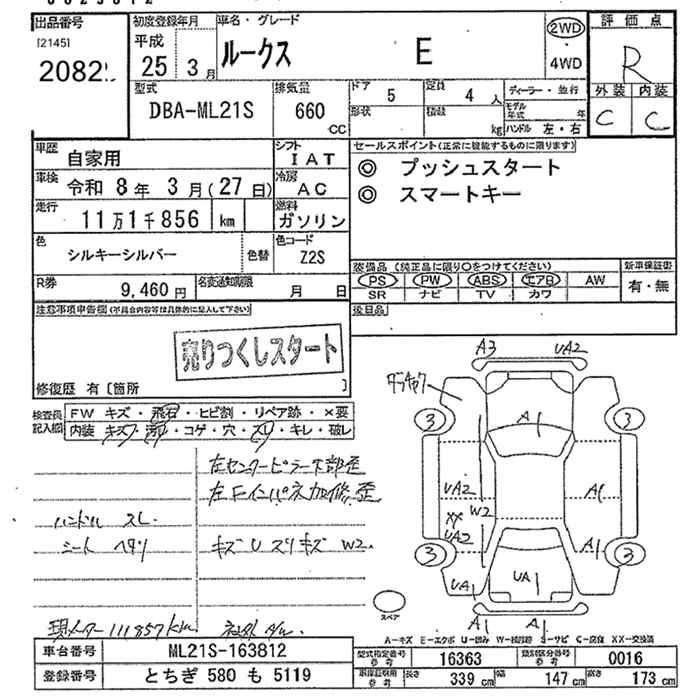 出品番号
[2145]
初度登録年月
平成
25 3月
車名・グレード
ルークス E
2WD
4WD
評価点
R
外装 内装
C C
型式
DBA-ML21S
排気量
660
CC
ドア
5
形状
定員
4 人
積載
kg
ディーラー・並行
モデル年式 年
ハンドル 左・右
車歴
自家用
シフト
IAT
車検
令和 8年 3月(27日)
冷房
AC
走行
11万1千856 km
燃料
ガソリン
色
シルキーシルバー
色替
色コード
Z2S
R券
9,460円
名変通知期限
月 日
セールスポイント(正常に機能するものに限ります)
◎ プッシュスタート
◎ スマートキー
装備品(純正品に限り○をつけてください)
PS PW ABS エアB AW
SR ナビ TV カワ
新車保証書
有・無
後日品
注意事項申告欄(不具合内容等は具体的に記入して下さい)
売りつくしスタート
修復歴 有〔箇所 〕
検査員記入欄
FW キズ・飛石・ヒビ割・リペア跡・×要
内装 キズ・汚れ・コゲ・穴・スレ・キレ・破レ
左センターピラー下部歪
左Fインパネ加修、歪
ハンドル スレ
シート ヘタリ
キズU スリキズ W2.
現メーター 111857km 社外A/W
A3
UA2
3
3
A1
UA2
W2
XX
UA2
A1
3
A1
3
UA1
UA1
A1
A1
スペア
A-キズ E-エクボ U-凹み W-補修跡 S-サビ C-腐食 XX-交換済
車台番号
ML21S-163812
登録番号
とちぎ 580 も 5119
型式指定番号
参考
16363
類別区分番号
参考
0016
車庫証明用
参考
長さ
339 cm
幅
147 cm
高さ
173 cm